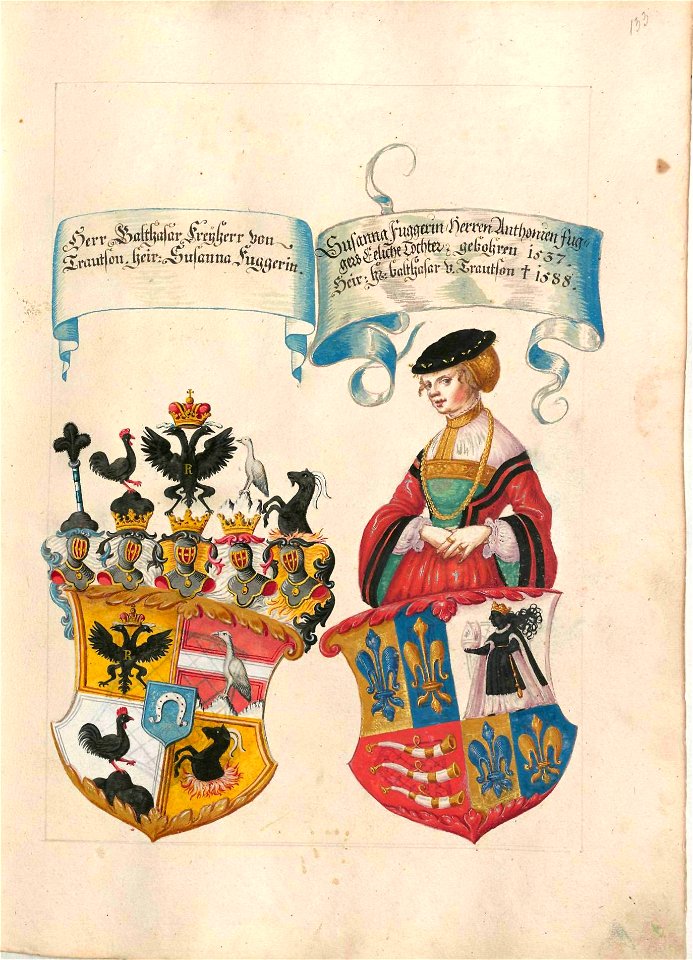 133
Herr Balthasar Freyherr von
Trautson, heir: Susanna Fuggerin.
Susanna Fuggerin, Herren Anthonien Fug-
gers Eeliche Tochter, gebohren 1537.
Heir, Hr: balthasar v. Trautson † 1588.
R
R